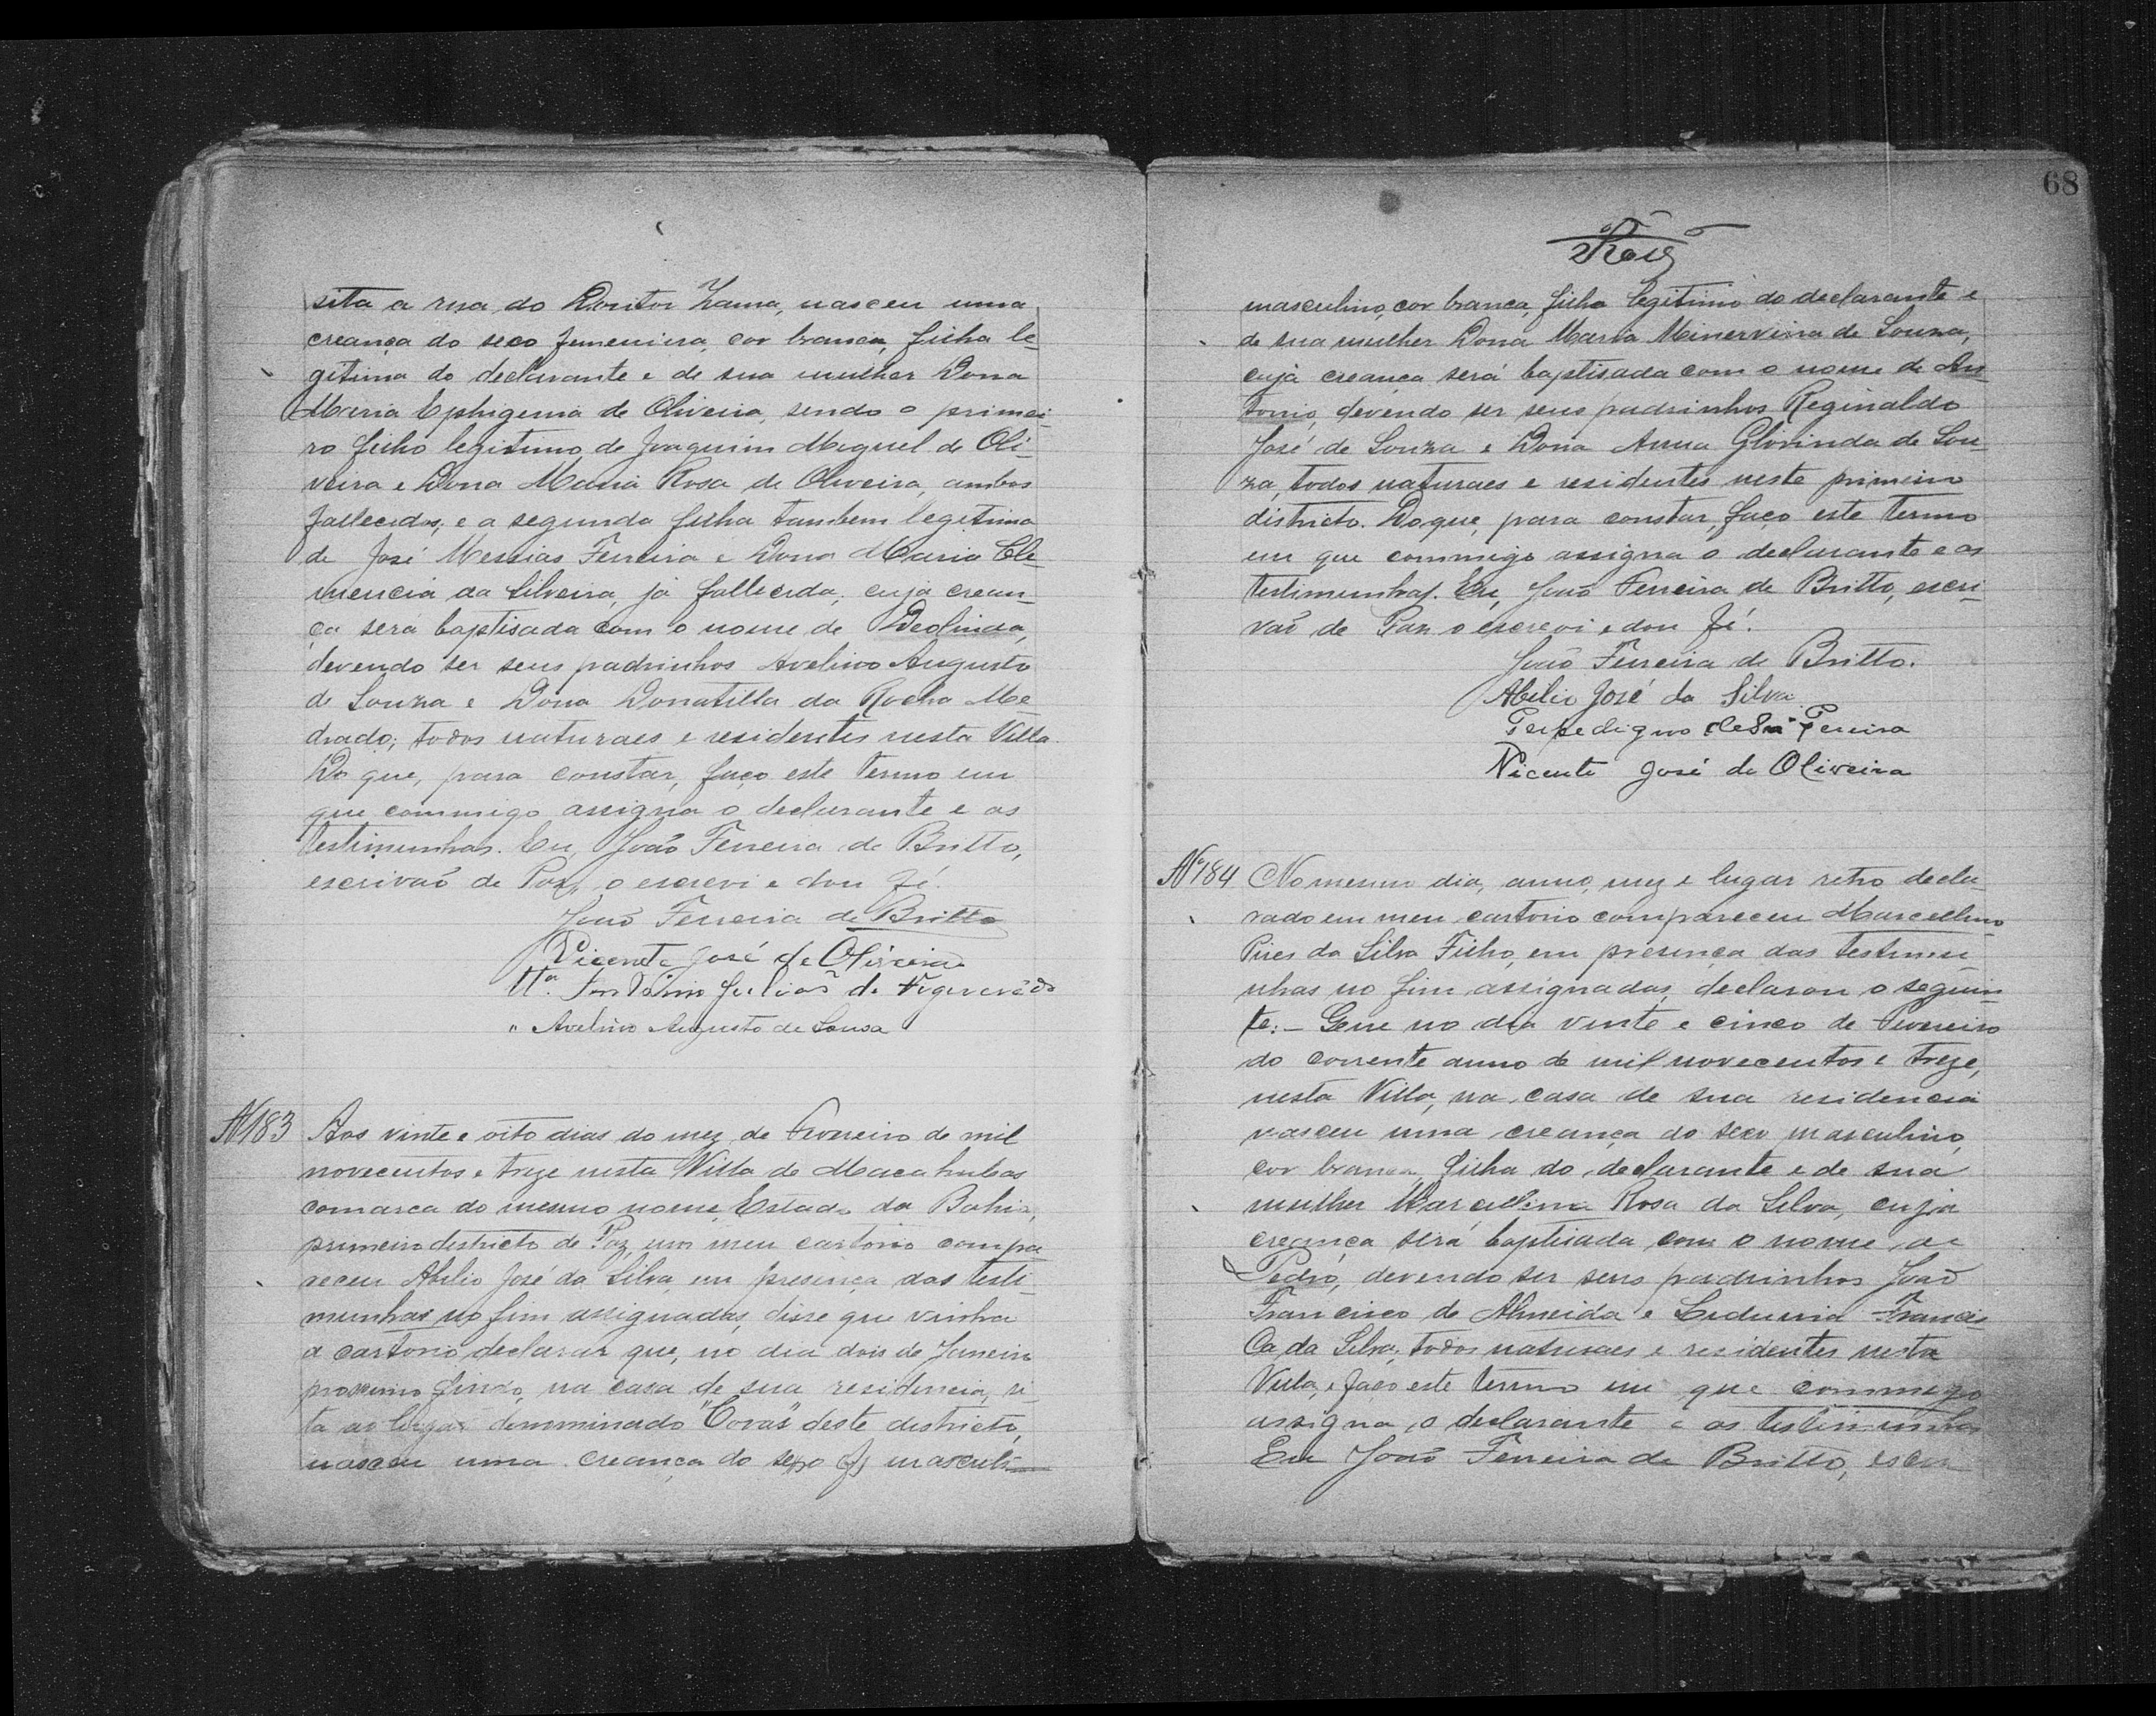 sita a rua do Doutor Zama, nasceu uma
creança do seco femenina, cor branca, filha le-
gitima do declarante e de sua mulher Dona
Maria Ephigenia de Oliveira, sendo o primei-
ro filho legitimo de Joaquim Miguel de Oli-
veira e Dona Maria Rosa de Oliveira, ambos
fallecidos; e a segunda filha tambem legitima
de José Messias Ferreira e Dona Maria Cle-
mencia da Silveira, já fallecida, cuja crean-
ça será baptisada com o nome de Deolinda,
devendo ser seus padrinhos Avelino Augusto
de Souza e Dona Donatilla da Rocha Me-
drado; todos naturaes e residentes nesta Villa.
Do que, para constar, faço este termo em
que commigo assigna o declarante e as
testimunhas. Eu, João Ferreira de Britto,
escrivaõ de Paz, o escrevi e dou fé.
João Ferreira de Britto
Vicente José de Oliveira
Antonio Julião de Figueredo
" Avelino Augusto de Sousa
Nº 183 Aos vinte e oito dias do mez de Fevereiro de mil
novecentos e treze nesta Villa de Macahubas
comarca do mesmo nome, Estado da Bahia,
primeiro districto de Paz, em meu cartorio compa-
receu Abilio José da Silva, em presença das testi-
munhas no fim assignadas, disse que vinha
a cartorio declarar que, no dia dois de Janeiro
proximo findo, na casa de sua residencia, si-
ta ao lugar denominado "Covas" deste districto,
nasceu uma creança do sexo masculi
68
masculino, cor branca, filho legitimo do declarante e
de sua mulher Dona Maria Minervina de Souza,
cuja creança será baptisada com o nome de An-
tonio, devendo ser seus padrinhos Reginaldo
José de Souza e Dona Anna Glorinda de Sou-
za, todos naturaes e residentes neste primeiro
districto. Do que, para constar, faço este termo
em que commigo assigna o declarante e as
testimunhas. Eu, João Ferreira de Britto, escri-
vaõ de Paz o escrevi e dou fé.
João Ferreira de Britto.
Abilio José da Silva
Perpedigno de Sª Pereira
Vicente José de Oliveira
Nº 184 No mesmo dia, anno, mez e lugar retro decla-
rado em meu cartorio compareceu Marcellino
Pires da Silva Filho, em presença das testimu-
nhas no fim assignadas, declarou o seguin-
te: – Que no dia vinte e cinco de Fevereiro
do corrente anno de mil novecentos e treze,
nesta Villa, na casa de sua residencia
nasceu uma creança do sexo masculino,
cor branca, filha do declarante e de sua
mulher Marcellina Rosa da Silva, cuja
creança será baptisada com o nome de
Pedro, devendo ser seus padrinhos João
Francisco de Almeida e Francis
ca da Silva, todos naturaes e residentes nesta
Villa, e faço este termo em que commigo
assigna o declarante e as testimunhas
Eu João Ferreira de Britto, escri